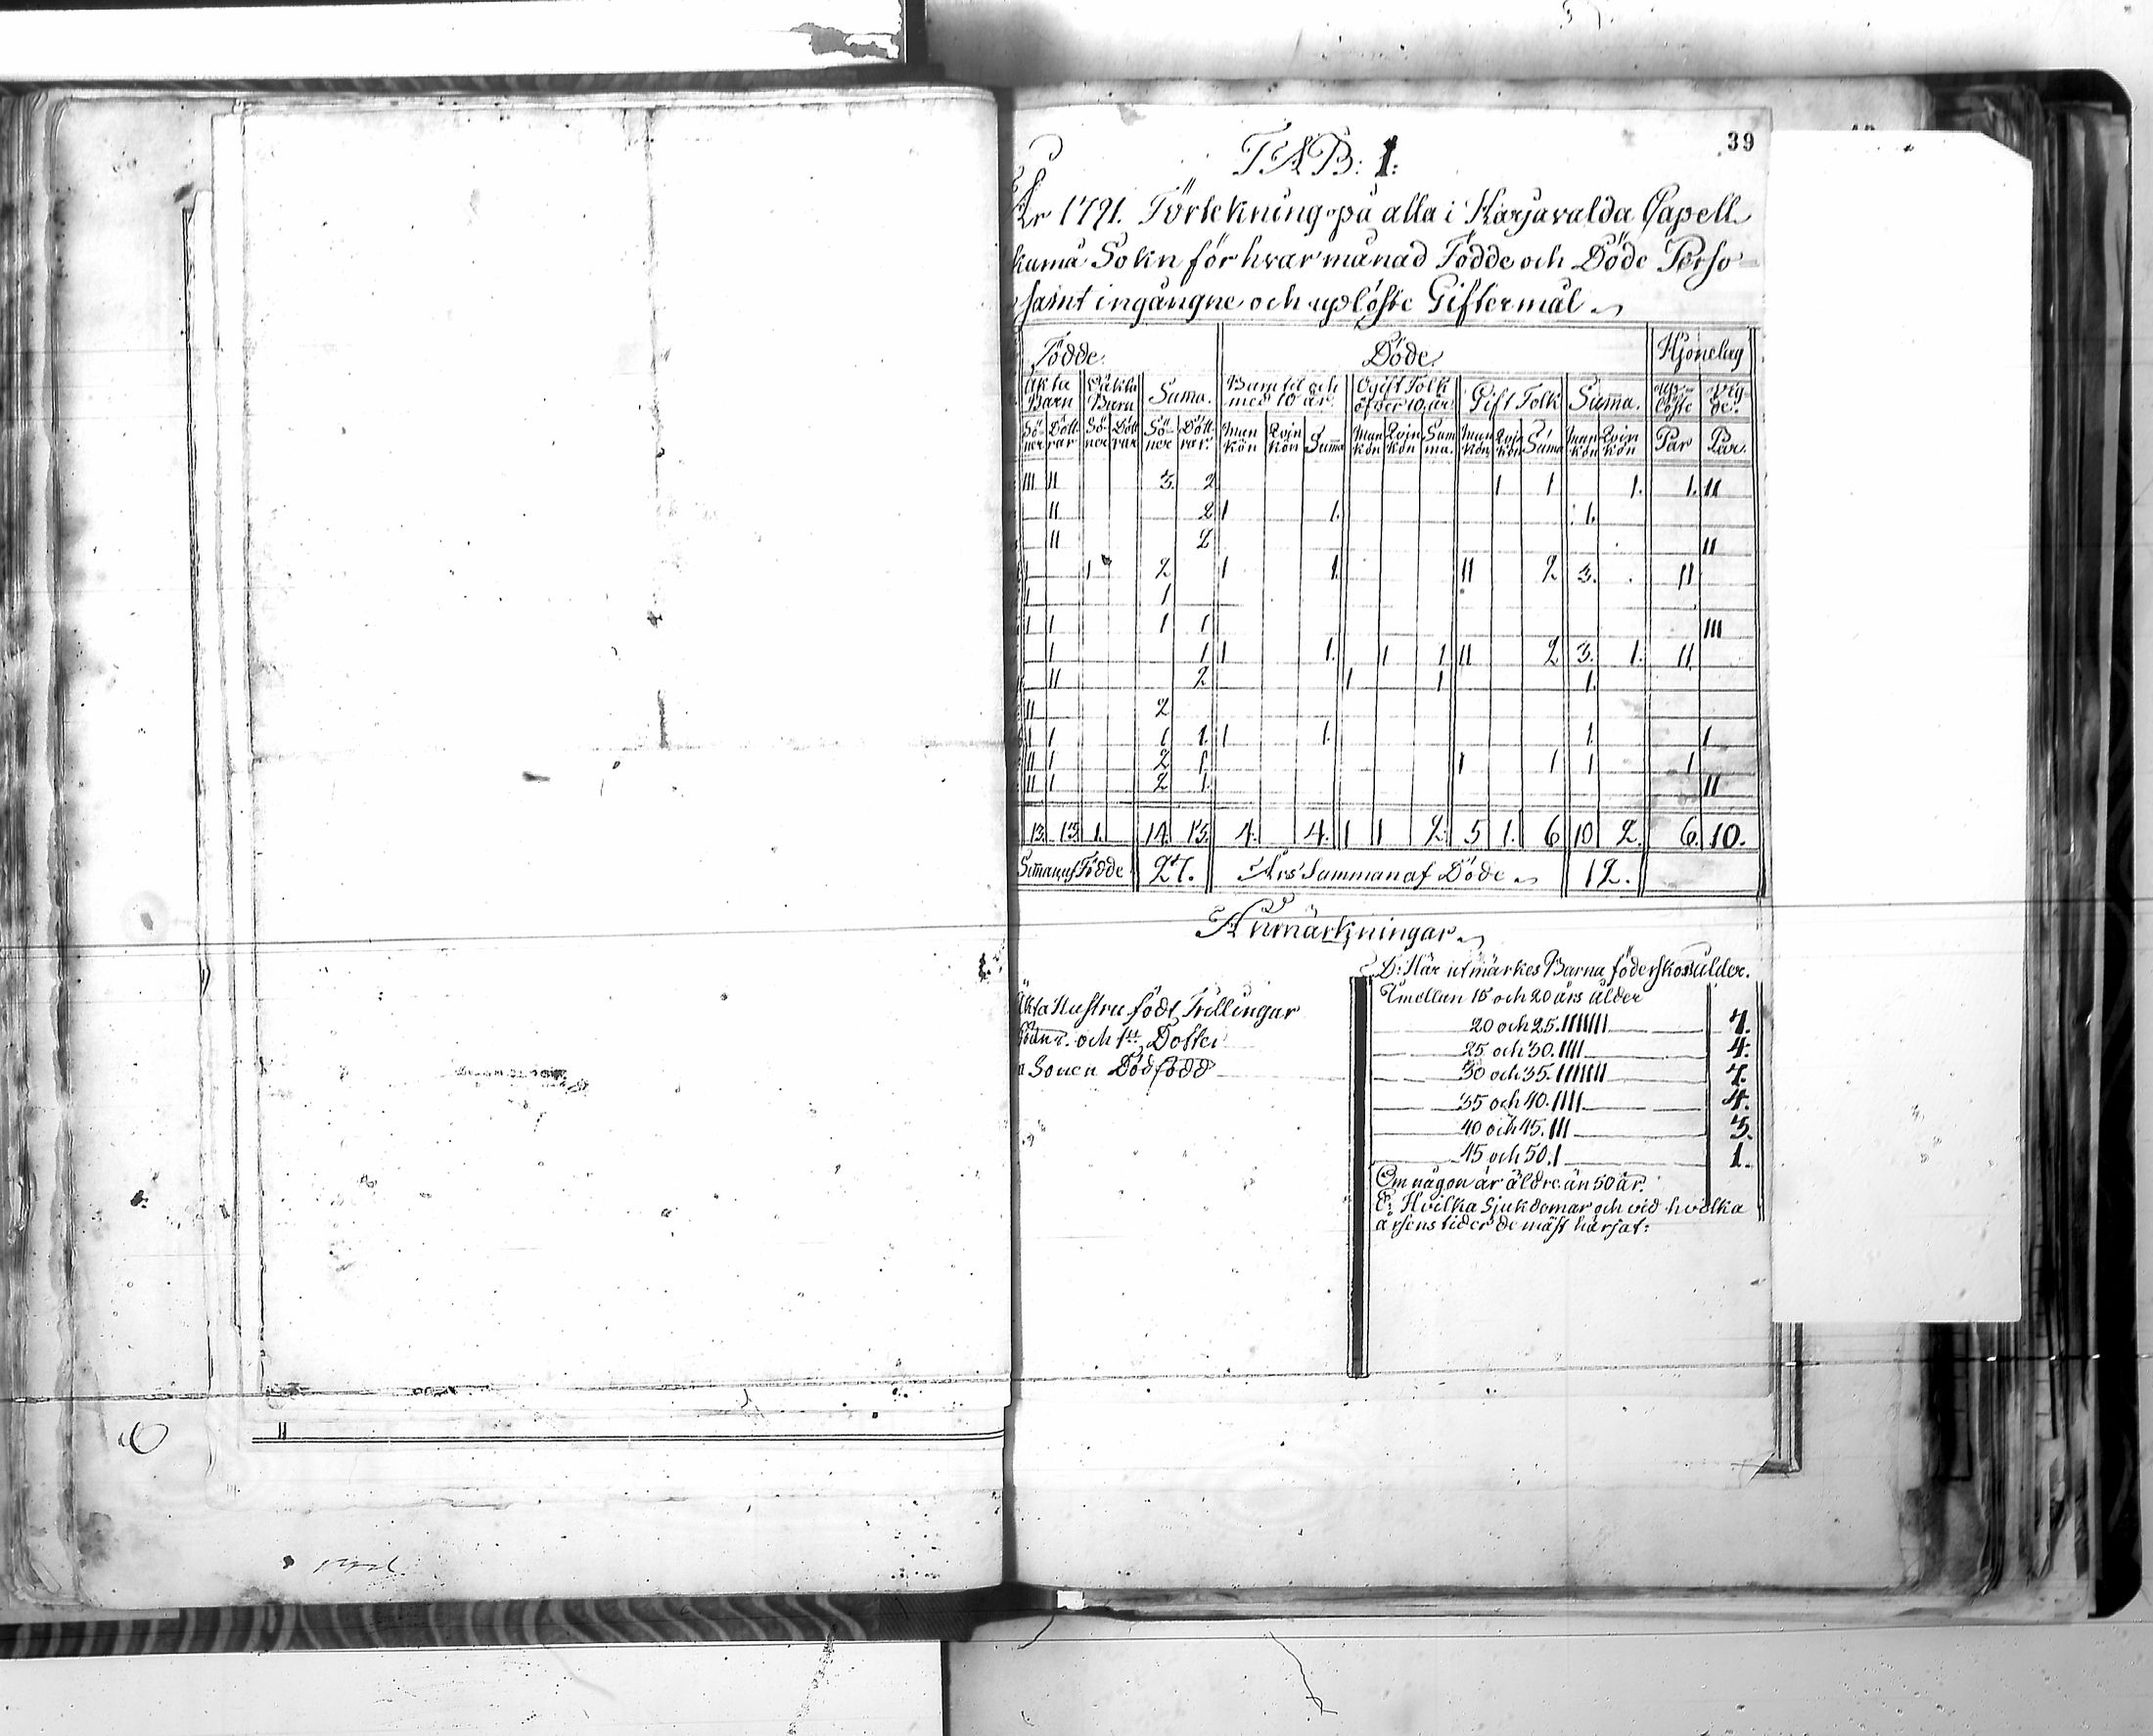 39
TAB: 1:
År 1791. Förtekning på alla i Karjavalda Capell
kumä Sokn för hvar månad Födde och Döde Perso=
samt ingångne och uplöste Giftermål
Födde. Döde. Hjonelag
Äkta Barn Oäkta Barn Suma. Barn til och med 10 år Ogift Folk öfver 10 år Gift Folk Suma. up=löste vig=de.
Sö=ner Dött rar Sö=ner Dött rar Sö=ner Dött rar. Man kön Qvin kön Suma Man kön Qvin kön Sum ma. Man kön Qvin kön Suma Man kön Qvin kön Par Par.
III II 3. 2 1 1 1. 1. II
II 2 1 1. 1.
II 2 II
1 1 2 1 1. II 2 3. II
1 1
1 1 1 1 III
1 1 1 1. 1 1 II 2 3. 1. II
II 2 1 1 1.
II 2
1 1 1 1. 1 1. 1. 1
II 1 2 1 1 1 1 1
II 1 2 1. II
13. 13 1. 14. 13. 4. 4. 1 1 2. 5 1. 6 10 2. 6. 10.
Födde 27. Års Summan af Döde 12.
Anmärkningar
D: Här utmärkes Barna föderskors ålder.
Äkta Hustru födt Trillingar
och 1 Dotter
Sonen Dödfödd
Emellan 15 och 20 års ålder
20 och 25. IIIIIII 7.
25 och 30. IIII 4.
30 och 35. IIIIIII 7.
35 och 40. IIII 4.
40 och 45. III 3.
45 och 50. I 1.
Om någon är äldre än 50 år.
E: Hvilka Sjukdomar och vid hvilka
årsens tider de mäst härjat: